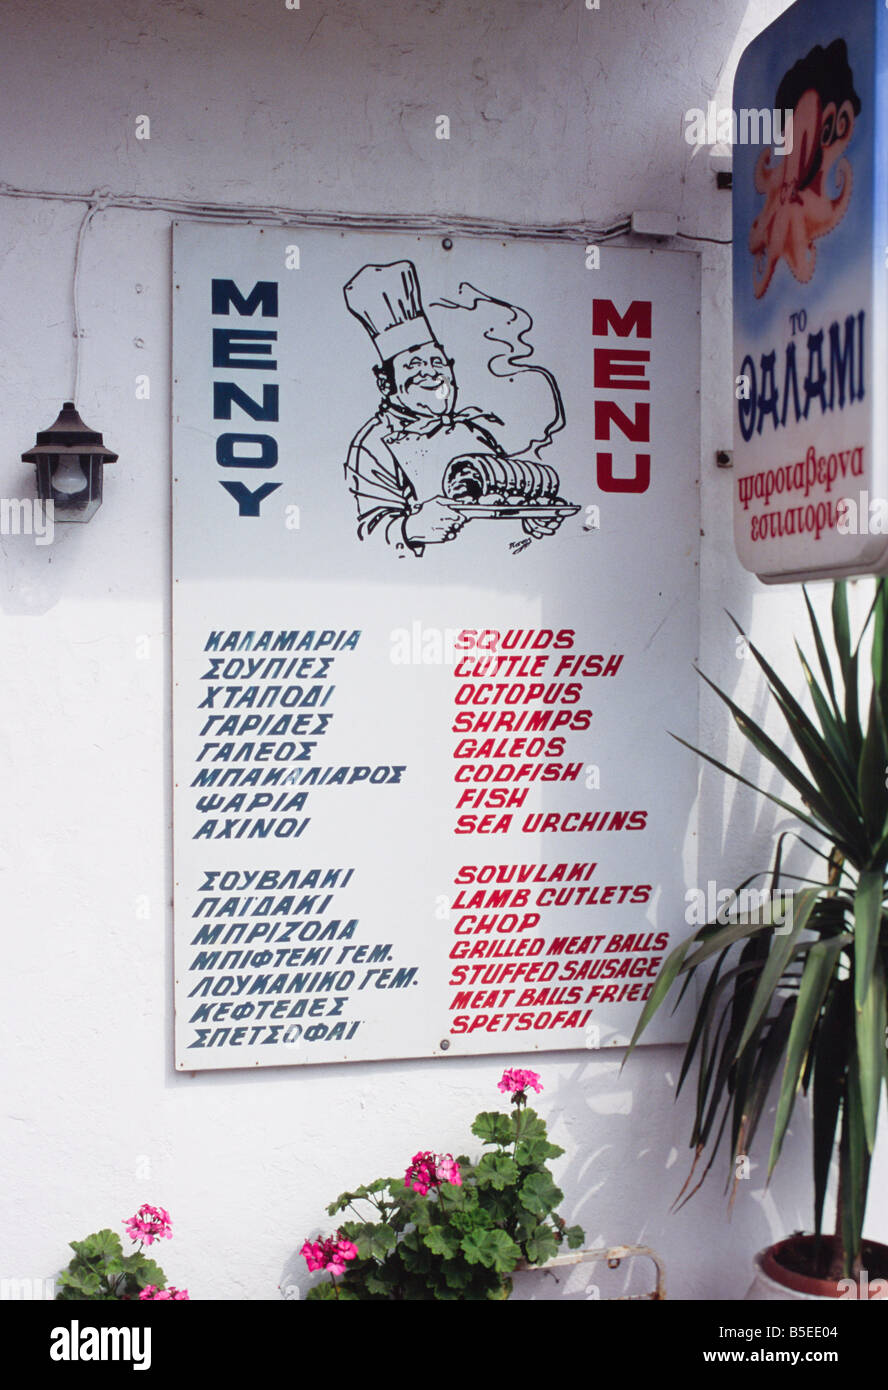 ΜΕΝΟΥ
MENU
ΚΑΛΑΜΑΡΙΑ SQUIDS
ΣΟΥΠΙΕΣ CUTTLE FISH
ΧΤΑΠΟΔΙ OCTOPUS
ΓΑΡΙΔΕΣ SHRIMPS
ΓΑΛΕΟΣ GALEOS
ΜΠΑΚΑΛΙΑΡΟΣ CODFISH
ΨΑΡΙΑ FISH
ΑΧΙΝΟΙ SEA URCHINS
ΣΟΥΒΛΑΚΙ SOUVLAKI
ΠΑΪΔΑΚΙ LAMB CUTLETS
ΜΠΡΙΖΟΛΑ CHOP
ΜΠΙΦΤΕΚΙ ΓΕΜ. GRILLED MEAT BALLS
ΛΟΥΚΑΝΙΚΟ ΓΕΜ. STUFFED SAUSAGE
ΚΕΦΤΕΔΕΣ MEAT BALLS FRIED
ΣΠΕΤΣΟΦΑΪ SPETSOFAI
ΤΟ
ΘΑΛΑΜΙ
ψαροταβερνα
εστιατοριο
alamy
Image ID: B5EE04
www.alamy.com